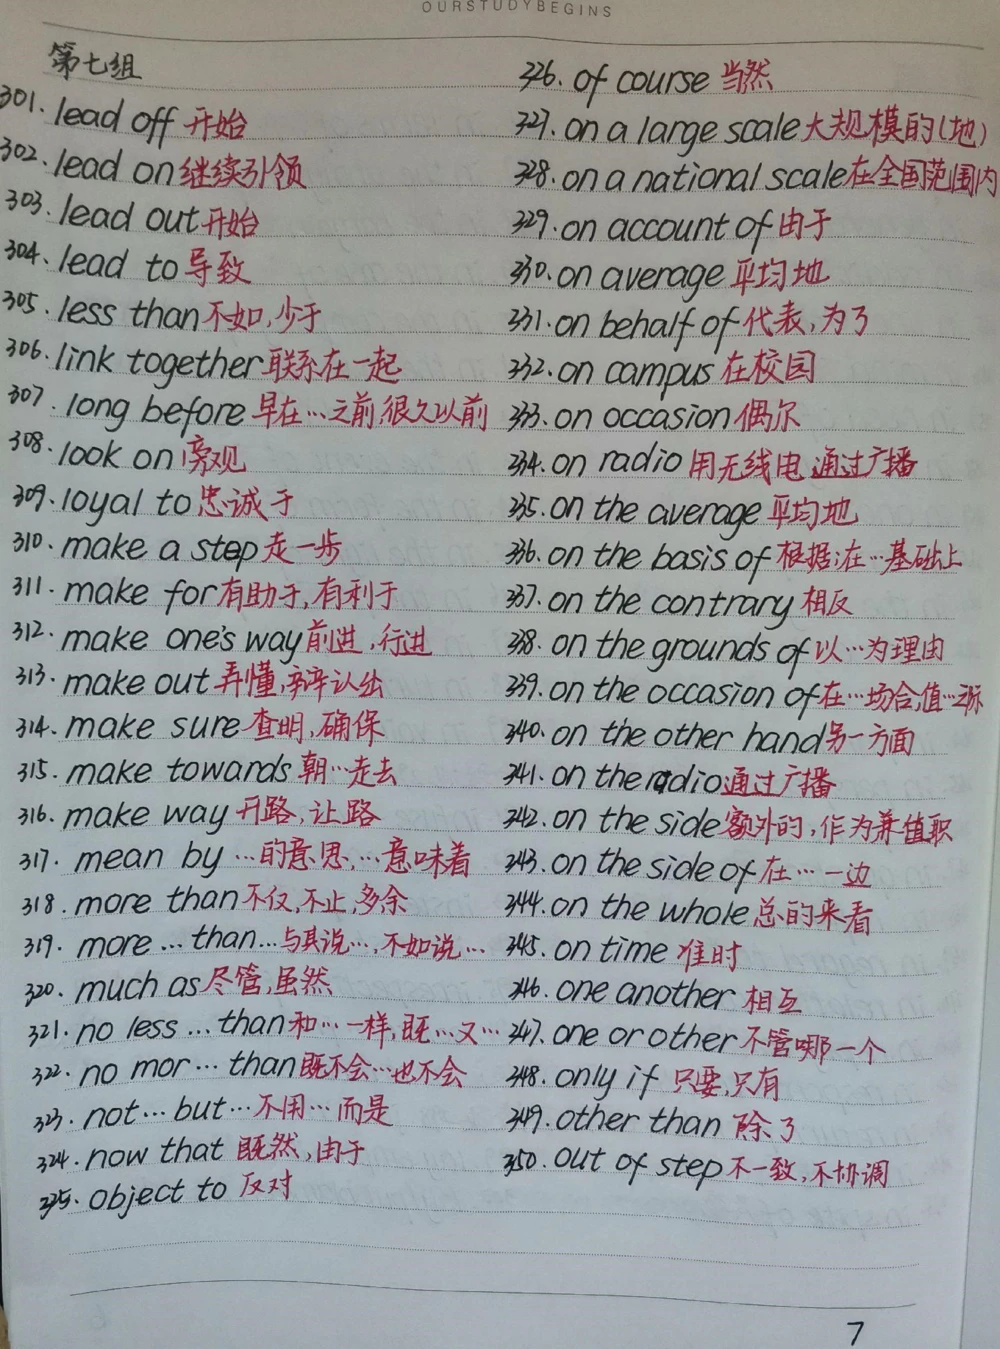 OURSTUDYBEGINS
第七组
301. lead off 开始
302. lead on 继续引领
303. lead out 开始
304. lead to 导致
305. less than 不如,少于
306. link together 联系在一起
307. long before 早在…之前,很久以前
308. look on 旁观
309. loyal to 忠诚于
310. make a step 走一步
311. make for 有助于,有利于
312. make one's way 前进,行进
313. make out 弄懂,辩认出
314. make sure 查明,确保
315. make towards 朝…走去
316. make way 开路,让路
317. mean by …的意思,…意味着
318. more than 不仅,不止,多余
319. more … than … 与其说…,不如说…
320. much as 尽管,虽然
321. no less … than 和…一样,既…又…
322. no mor … than 既不会…也不会
323. not … but … 不用…而是
324. now that 既然,由于
325. object to 反对
326. of course 当然
327. on a large scale 大规模的(地)
328. on a national scale 在全国范围内
329. on account of 由于
330. on average 平均地
331. on behalf of 代表,为了
332. on campus 在校园
333. on occasion 偶尔
334. on radio 用无线电 通过广播
335. on the average 平均地
336. on the basis of 根据;在…基础上
337. on the contrary 相反
338. on the grounds of 以…为理由
339. on the occasion of 在…场合,值…之际
340. on the other hand 另一方面
341. on the radio 通过广播
342. on the side 额外的,作为兼值职
343. on the side of 在…一边
344. on the whole 总的来看
345. on time 准时
346. one another 相互
347. one or other 不管哪一个
348. only if 只要,只有
349. other than 除了
350. out of step 不一致,不协调
7